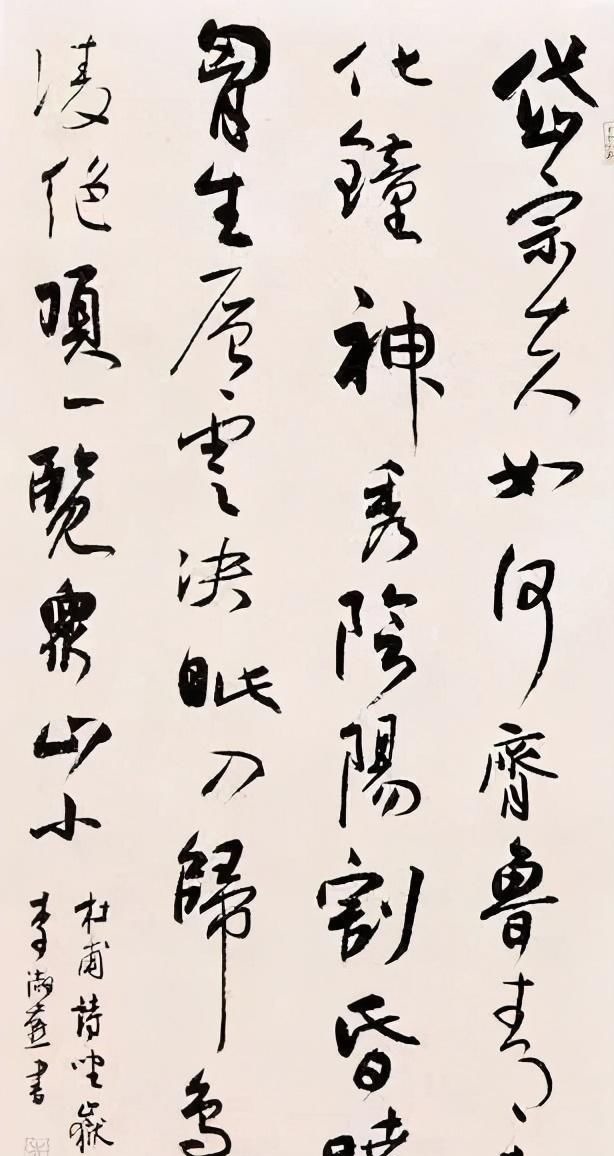 岱宗夫如何齊魯青
化鐘神秀陰陽割昏曉
胷生层雲決眦入歸鳥
凌絕頂一覽衆山小
杜甫詩望嶽
李淑書